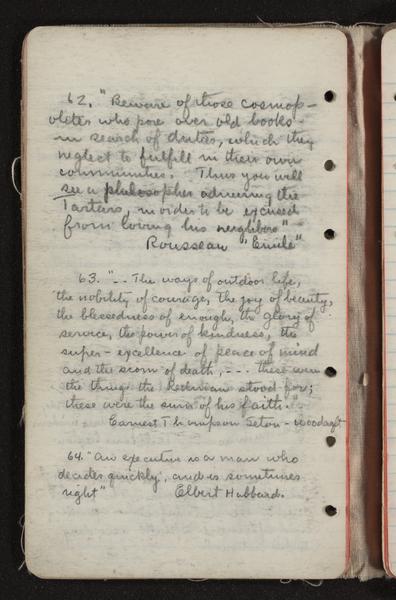 62. "Beware of those cosmop-
olites who pore over old books
in search of duties, which they
neglect to fulfill in their own
communities. Thus you will
see a philosopher admiring the
Tartars, in order to be excused
from loving his neighbors"
Rousseau "Emile"
63. "-- The ways of outdoor life,
the nobility of courage, the joy of beauty,
the blessedness of enough, the glory of
service, the power of kindness, the
super-excellence of peace of mind
and the scorn of death, --- these were
the things the Redman stood for;
these were the sum of his faith."
Earnest Thompson Seton -
64. "An executive is a man who
decides quickly, and is sometimes
right" Elbert Hubbard.